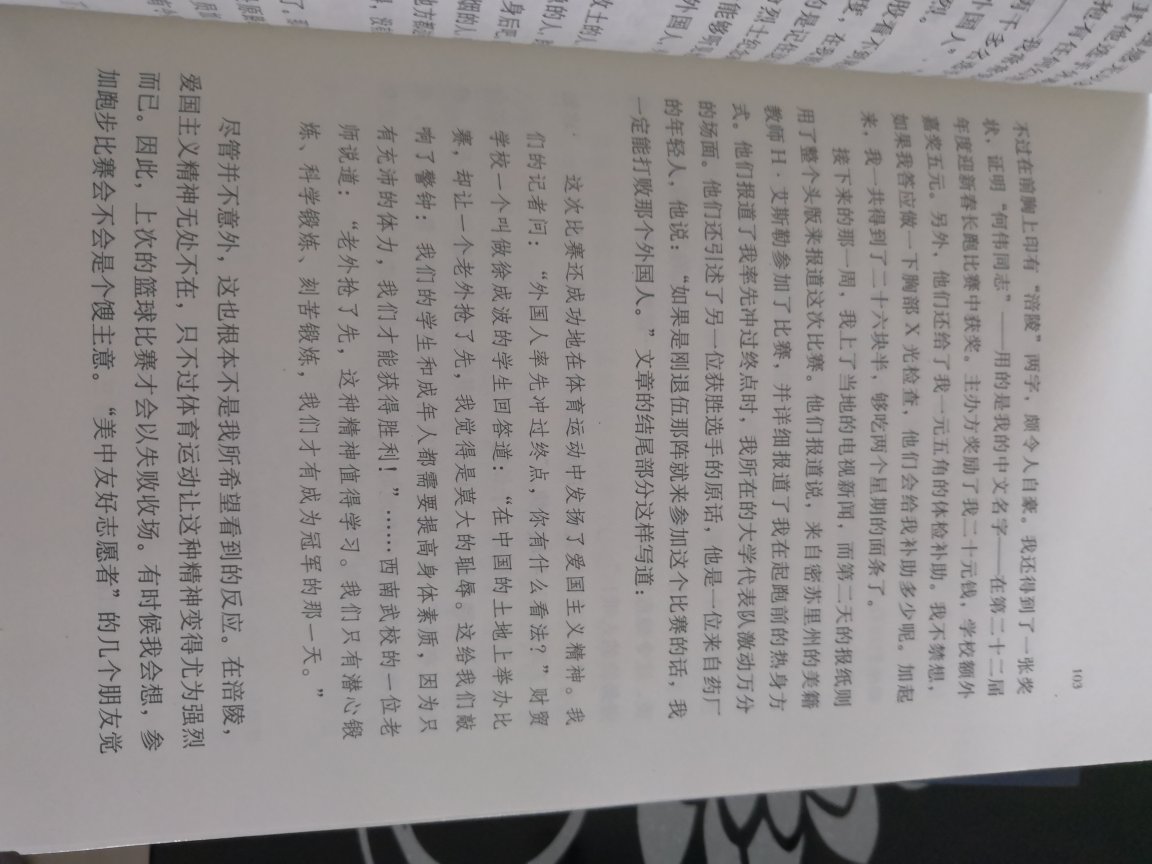 103
不过在前胸上印有“涪陵”两字，颇令人自豪。我还得到了一张奖
状，证明“何伟同志”——用的是我的中文名字——在第二十二届
年度迎新春长跑比赛中获奖。主办方奖励了我二十元钱，学校额外
嘉奖五元。另外，他们还给了我一元五角的体检补助。我不禁想，
如果我答应做一下胸部 X 光检查，他们会给我补助多少呢。加起
来，我一共得到了二十六块半，够吃两个星期的面条了。
接下来的那一周，我上了当地的电视新闻，而第二天的报纸则
用了整个头版来报道这次比赛。他们报道说，来自密苏里州的美籍
教师 H · 艾斯勒参加了比赛，并详细报道了我在起跑前的热身方
式。他们报道了我率先冲过终点时，我所在的大学代表队激动万分
的场面。他们还引述了另一位获胜选手的原话，他是一位来自药厂
的年轻人，他说：“如果是刚退伍那阵就来参加这个比赛的话，我
一定能打败那个外国人。”文章的结尾部分这样写道：
这次比赛还成功地在体育运动中发扬了爱国主义精神。我
们的记者问：“外国人率先冲过终点，你有什么看法？”财贸
学校一个叫做徐成波的学生回答道：“在中国的土地上举办比
赛，却让一个老外抢了先，我觉得是莫大的耻辱。这给我们敲
响了警钟：我们的学生和成年人都需要提高身体素质，因为只
有充沛的体力，我们才能获得胜利！”……西南武校的一位老
师说道：“老外抢了先，这种精神值得学习。我们只有潜心锻
炼、科学锻炼、刻苦锻炼，我们才有成为冠军的那一天。”
尽管并不意外，这也根本不是我所希望看到的反应。在涪陵，
爱国主义精神无处不在，只不过体育运动让这种精神变得尤为强烈
而已。因此，上次的篮球比赛才会以失败收场。有时候我会想，参
加跑步比赛会不会是个馊主意。“美中友好志愿者”的几个朋友觉